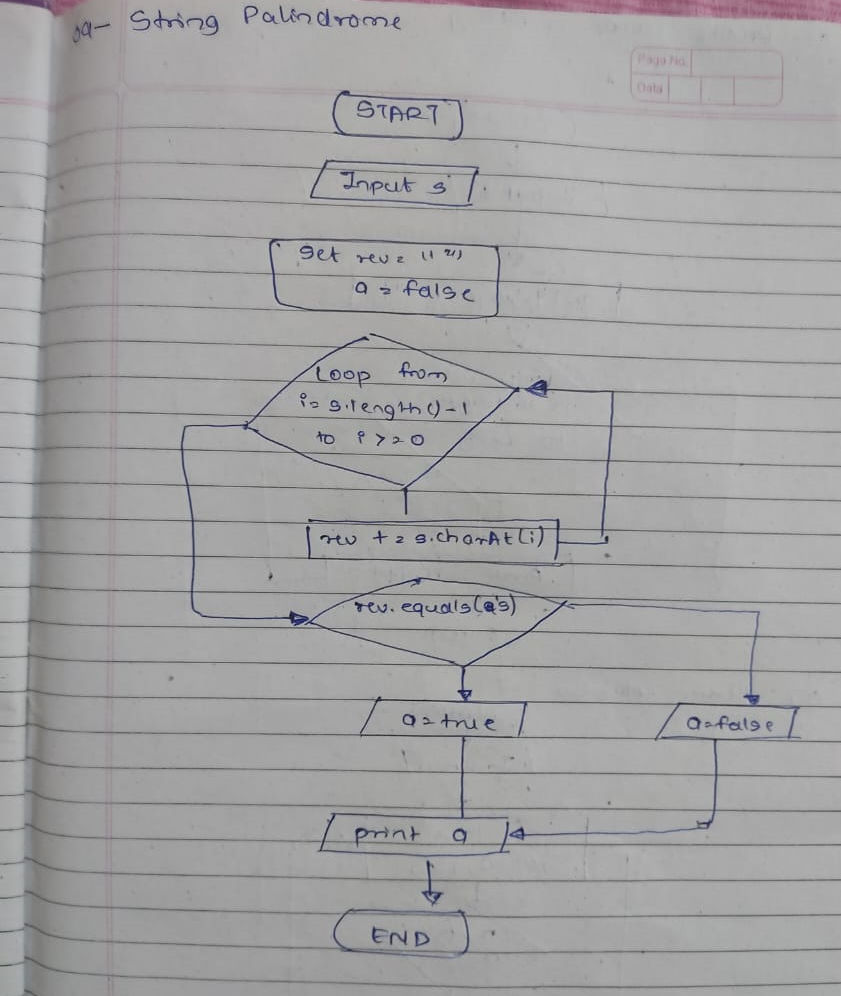 String Palindrome
Page No.
Date
START
Input s
Set rev = " "
a = false
Loop from
i = s.length()-1
to i >= 0
rev += s.charAt(i)
rev.equals(s)
a = true
a=false
print a
END